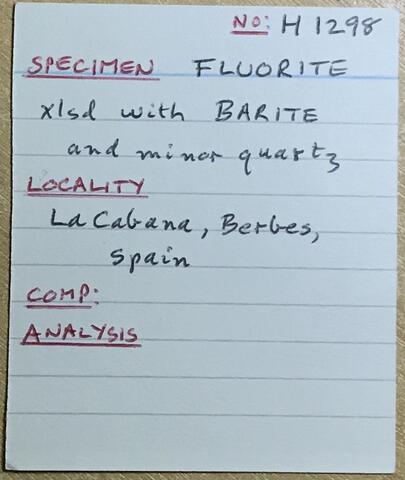 No: H 1298
SPECIMEN FLUORITE
xlsd with BARITE
and minor quartz
LOCALITY
La Cabana, Berbes,
Spain
COMP:
ANALYSIS